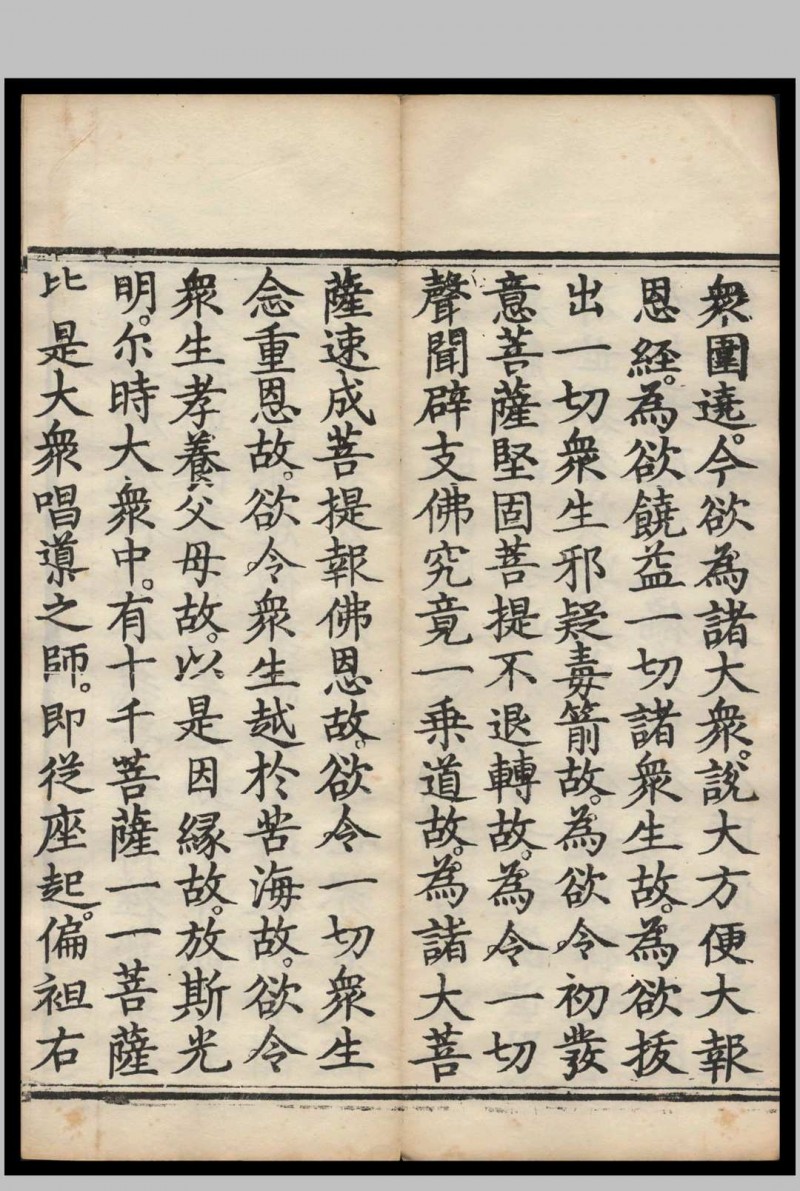 衆圍遶。今欲為諸大衆。說大方便大報
恩經。為欲饒益一切諸衆生故。為欲拔
出一切衆生邪疑毒箭故。為欲令初發
意菩薩堅固菩提不退轉故。為令一切
聲聞辟支佛究竟一乗道故。為諸大菩
薩速成菩提報佛恩故。欲令一切衆生
念重恩故。欲令衆生越於苦海故。欲令
衆生孝養父母故。以是因緣故。放斯光
明。尔時大衆中。有十千菩薩一一菩薩
比是大衆唱導之師。即從座起。偏袒右